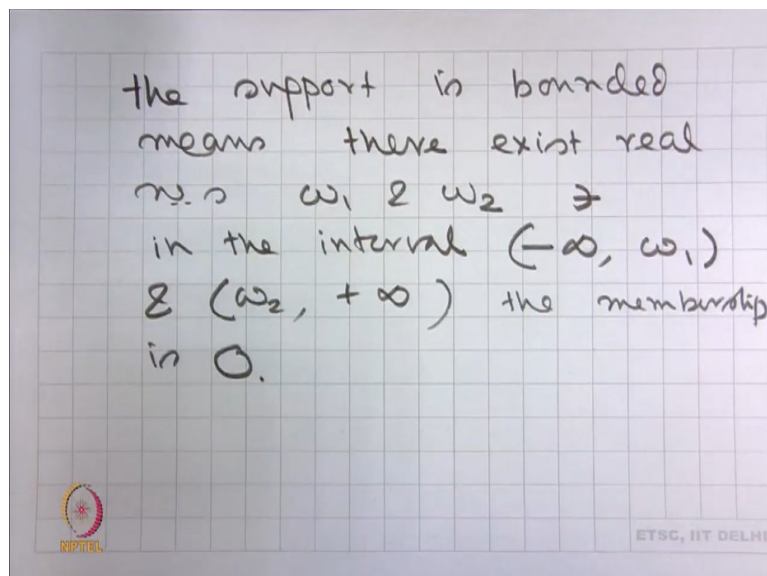 the support is bounded
means there exist real
no.s ω₁ & ω₂ ∋
in the interval (-∞, ω₁)
& (ω₂, +∞) the membership
is 0.
NPTEL
ETSC, IIT DELHI